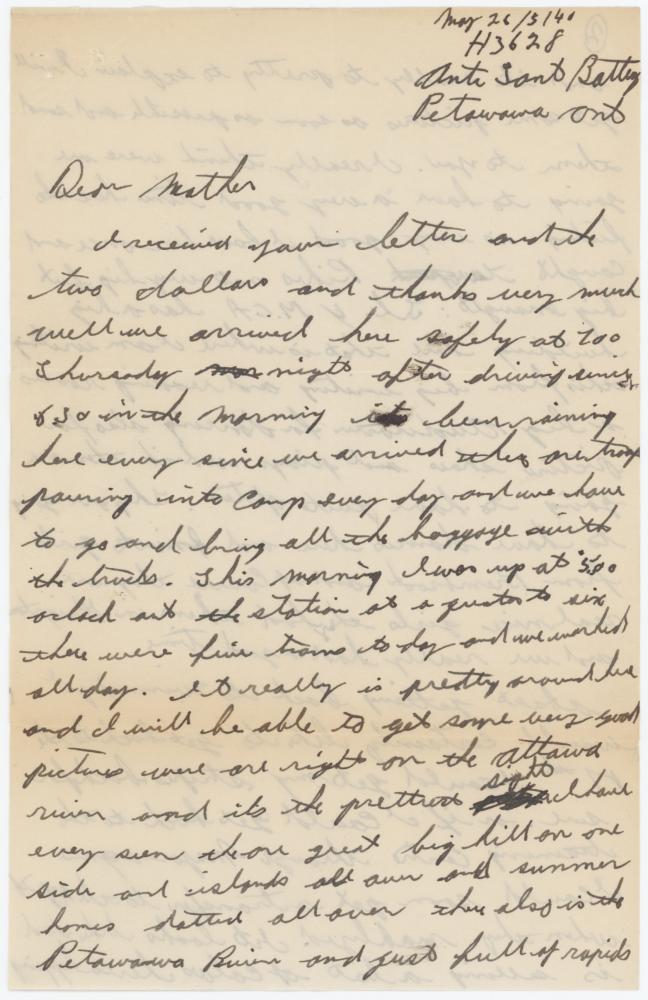 May 26/5/40
H3628
Anti Tank Battery
Petawawa Ont
Dear Mother
I received your letter and the
two dollars and thanks very much
well we arrived here safely at 700
Thursday night after driving since
830 in the morning its been raining
here every since we arrived ther are troop
pouring into Camp every day and we have
to go and bring all the baggage with
the trucks. This morning I was up at 5.00
oclock and the station at a quater to six
there were five trains to day and we worked
all day. It really is pretty around here
and I will be able to get some very good
pictures were are right on the Ottawa
river and its the prettiest sight I have
every seen there great big hill on one
side and islands all over and summer
homes dotted all over ther also is the
Petawawa River and just full of rapids